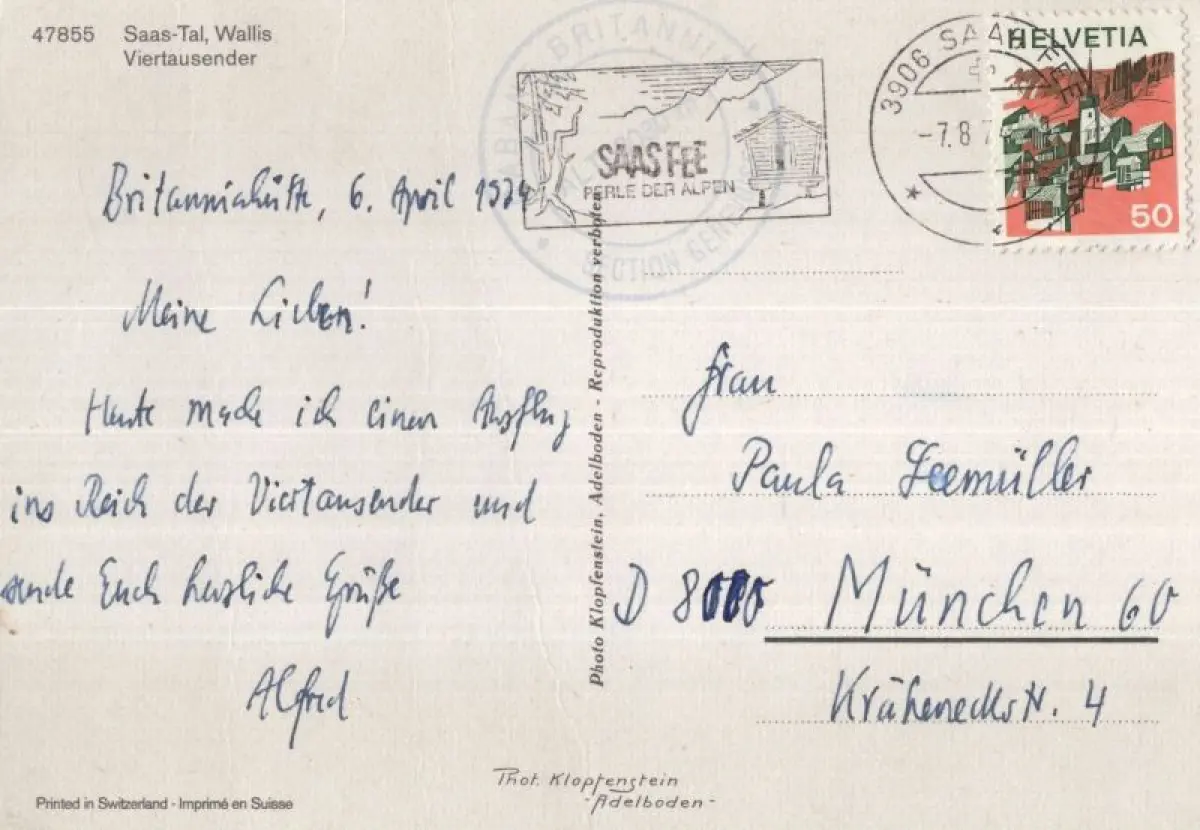 47855 Saas-Tal, Wallis
Viertausender
Britanniahütte, 6. April 1974
Meine Lieben!
Heute mache ich einen Ausflug
ins Reich der Viertausender und
sende Euch herzliche Grüße
Alfred
Printed in Switzerland - Imprimé en Suisse
Photo Klopfenstein, Adelboden - Reproduktion verboten
Thot. Klopfenstein
-Adelboden-
BRITANNIA
SECTION
SAAS FEE
PERLE DER ALPEN
3906 SAAS-FEE
-7.8.7
HELVETIA
50
Frau
Paula Seemüller
D 8000 München 60
Kräheneckstr. 4